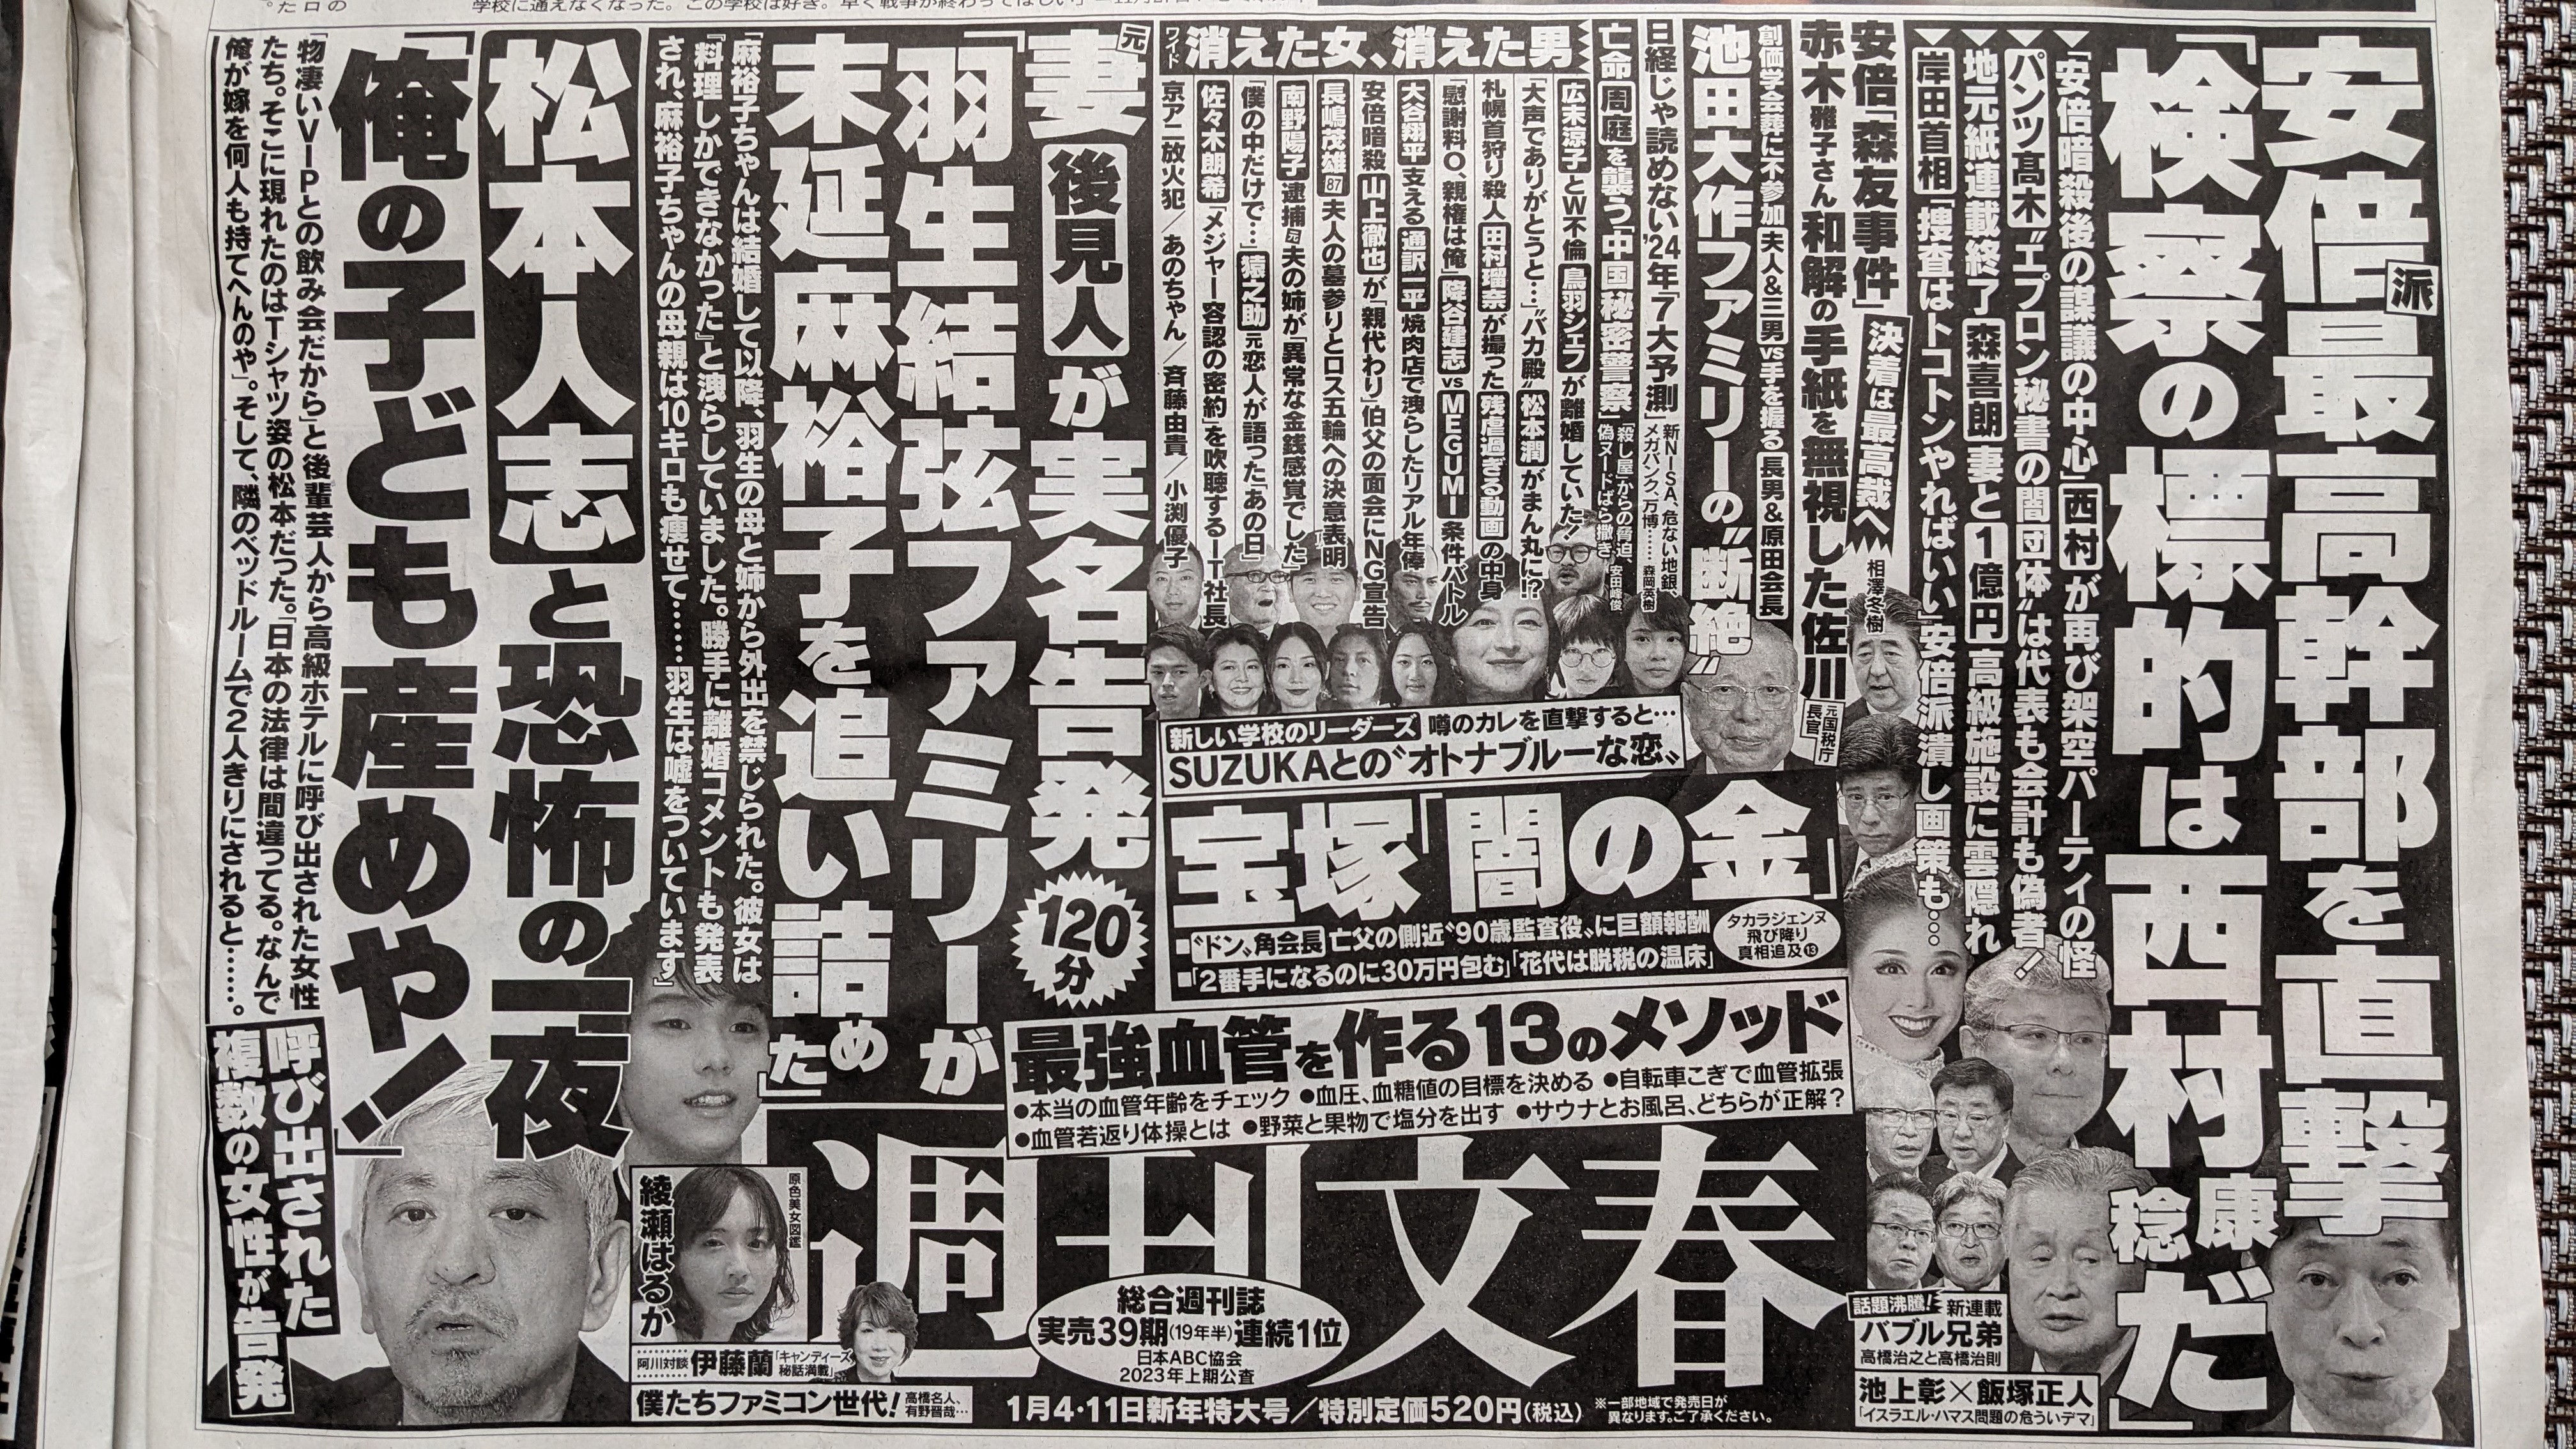 学校に通えなくなった。この学校は好き。早く戦争が終わってほしい」
安倍派最高幹部を直撃
「検察の標的は西村康稔だ」
▼「安倍暗殺後の謀議の中心」西村が再び架空パーティの怪
▼パンツ髙木〝エプロン秘書の闇団体〟は代表も会計も偽者!
▼地元紙連載終了 森喜朗 妻と1億円高級施設に雲隠れ
▼岸田首相「捜査はトコトンやればいい」安倍派潰し画策も…
安倍「森友事件」決着は最高裁へ 相澤冬樹
赤木雅子さん 和解の手紙を無視した佐川元国税庁長官
創価学会葬に不参加 夫人&三男vs手を握る長男&原田会長
池田大作ファミリーの〝断絶〟
日経じゃ読めない'24年「7大予測」
新NISA、危ない地銀、
メガバンク、万博…… 森岡英樹
亡命周庭を襲う「中国秘密警察」
「殺し屋」からの脅迫、
偽ヌードばら撒き 安田峰俊
ワイド 消えた女、消えた男
広末涼子とW不倫 鳥羽シェフが離婚していた!
「大声でありがとうと…」〝バカ殿〟松本潤がまん丸に!?
札幌首狩り殺人 田村瑠奈が撮った残虐過ぎる動画の中身
「慰謝料0、親権は俺」降谷建志vsMEGUMI 条件バトル
大谷翔平支える通訳一平 焼肉店で洩らしたリアル年俸
安倍暗殺 山上徹也が「親代わり」伯父の面会にNG宣告
長嶋茂雄87 夫人の墓参りとロス五輪への決意表明
南野陽子 逮捕元夫の姉が「異常な金銭感覚でした」
「僕の中だけで…」猿之助 元恋人が語った「あの日」
佐々木朗希「メジャー容認の密約」を吹聴するIT社長
京アニ放火犯/あのちゃん/斉藤由貴/小渕優子
新しい学校のリーダーズ 噂のカレを直撃すると…
SUZUKAとの〝オトナブルーな恋〟
宝塚「闇の金」
■〝ドン〟角会長 亡父の側近〝90歳監査役〟に巨額報酬
■「2番手になるのに30万円包む」「花代は脱税の温床」
タカラジェンヌ
飛び降り
真相追及⑬
元妻 後見人が実名告発 120分
「羽生結弦ファミリーが
末延麻裕子を追い詰めた」
「麻裕子ちゃんは結婚して以降、羽生の母と姉から外出を禁じられた。彼女は
『料理しかできなかった』と洩らしていました。勝手に離婚コメントも発表
され、麻裕子ちゃんの母親は10キロも痩せて……羽生は嘘をついています」
松本人志と恐怖の一夜
「俺の子ども産めや!」
「物凄いVIPとの飲み会だから」と後輩芸人から高級ホテルに呼び出された女性
たち。そこに現れたのはTシャツ姿の松本だった。「日本の法律は間違ってる。なんで
俺が嫁を何人も持てへんのや」。そして、隣のベッドルームで2人きりにされると……。
呼び出された
複数の女性が告発
最強血管を作る13のメソッド
●本当の血管年齢をチェック ●血圧、血糖値の目標を決める ●自転車こぎで血管拡張
●血管若返り体操とは ●野菜と果物で塩分を出す ●サウナとお風呂、どちらが正解?
週刊文春
総合週刊誌
実売39期(19年半)連続1位
日本ABC協会
2023年上期公査
原色美女図鑑
綾瀬はるか
阿川対談 伊藤蘭「キャンディーズ秘話満載」
僕たちファミコン世代! 高橋名人、有野晋哉…
話題沸騰! 新連載
バブル兄弟
高橋治之と高橋治則
池上彰×飯塚正人
「イスラエル・ハマス問題の危ういデマ」
1月4・11日新年特大号/特別定価520円(税込)
※一部地域で発売日が
異なります。ご了承ください。